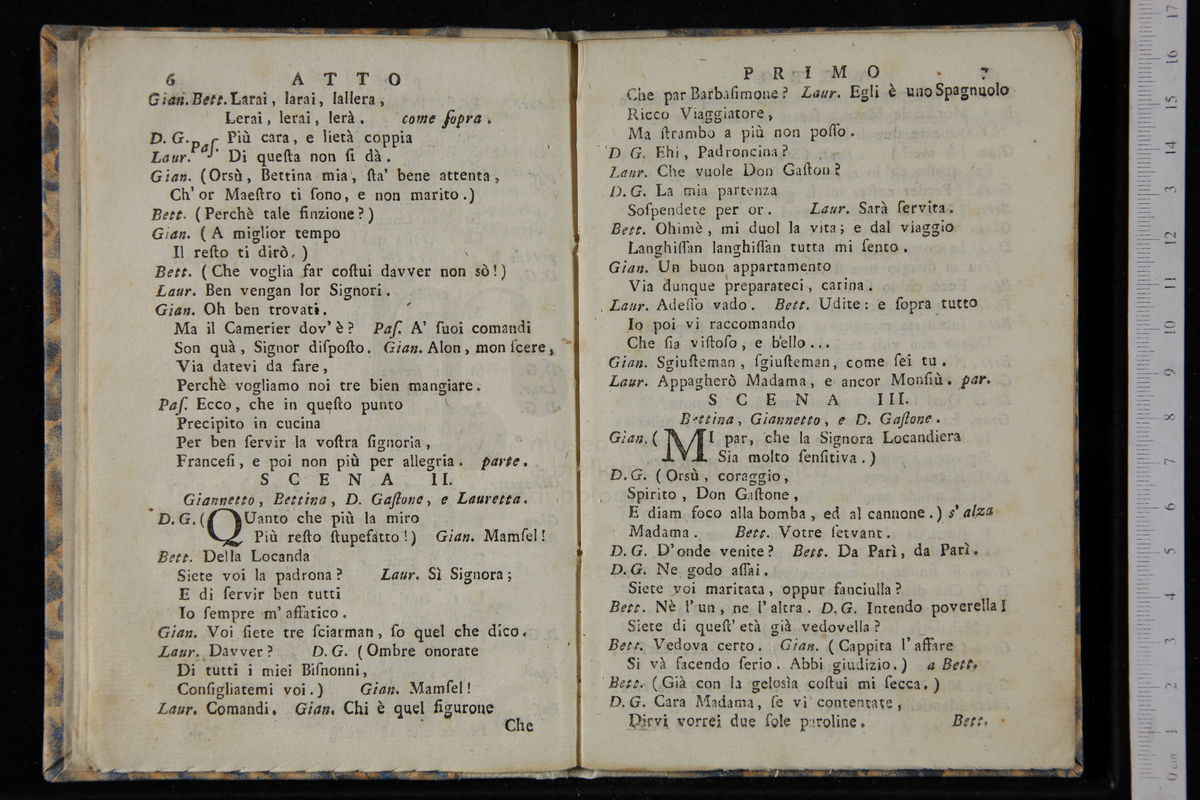 6 ATTO
Gian. Bett. Larai, larai, lallera,
Lerai, lerai, lerà. come ſopra.
D. G. Paſ. Più cara, e lieta coppia
Laur. Di queſta non ſi dà.
Gian. (Orsù, Bettina mia, ſta' bene attenta,
Ch' or Maeſtro ti ſono, e non marito.)
Bett. (Perchè tale finzione?)
Gian. (A miglior tempo
Il reſto ti dirò.)
Bett. (Che voglia far coſtui davver non sò!)
Laur. Ben vengan lor Signori.
Gian. Oh ben trovati.
Ma il Camerier dov' è? Paſ. A' ſuoi comandi
Son quà, Signor diſpoſto. Gian. Alon, mon ſcere,
Via datevi da fare,
Perchè vogliamo noi tre bien mangiare.
Paſ. Ecco, che in queſto punto
Precipito in cucina
Per ben ſervir la voſtra ſignoria,
Franceſi, e poi non più per allegria. parte.
SCENA II.
Giannetto, Bettina, D. Gaſtone, e Lauretta.
D. G. (QUanto che più la miro
Più reſto ſtupefatto!) Gian. Mamſel!
Bett. Della Locanda
Siete voi la padrona? Laur. Sì Signora;
E di ſervir ben tutti
Io ſempre m' affatico.
Gian. Voi ſiete tre ſciarman, ſo quel che dico.
Laur. Davver? D. G. (Ombre onorate
Di tutti i miei Biſnonni,
Conſigliatemi voi.) Gian. Mamſel!
Laur. Comandi. Gian. Chi è quel figurone
Che
PRIMO 7
Che par Barbaſimone? Laur. Egli è uno Spagnuolo
Ricco Viaggiatore,
Ma ſtrambo a più non poſſo.
D G. Ehi, Padroncina?
Laur. Che vuole Don Gaſton?
D. G. La mia partenza
Soſpendete per or. Laur. Sarà ſervita.
Bett. Ohimè, mi duol la vita; e dal viaggio
Langhiſſan langhiſſan tutta mi ſento.
Gian. Un buon appartamento
Via dunque preparateci, carina.
Laur. Adeſſo vado. Bett. Udite: e ſopra tutto
Io poi vi raccomando
Che ſia viſtoſo, e bello...
Gian. Sgiuſteman, ſgiuſteman, come ſei tu.
Laur. Appagherò Madama, e ancor Monſiù. par.
SCENA III.
Bettina, Giannetto, e D. Gaſtone.
Gian. (MI par, che la Signora Locandiera
Sia molto ſenſitiva.)
D. G. (Orsù, coraggio,
Spirito, Don Gaſtone,
E diam foco alla bomba, ed al cannone.) s' alza
Madama. Bett. Votre ſetvant.
D. G. D' onde venite? Bett. Da Parì, da Parì.
D. G. Ne godo aſſai.
Siete voi maritata, oppur fanciulla?
Bett. Nè l' un, ne l' altra. D. G. Intendo poverella!
Siete di queſt' età già vedovella?
Bett. Vedova certo. Gian. (Cappita l' affare
Si và facendo ſerio. Abbi giudizio.) a Bett.
Bett. (Già con la geloſìa coſtui mi ſecca.)
D. G. Cara Madama, ſe vi contentate,
Dirvi vorrei due ſole paroline. Bett.
0 cm 1 2 3 4 5 6 7 8 9 10 11 12 13 14 15 16 17